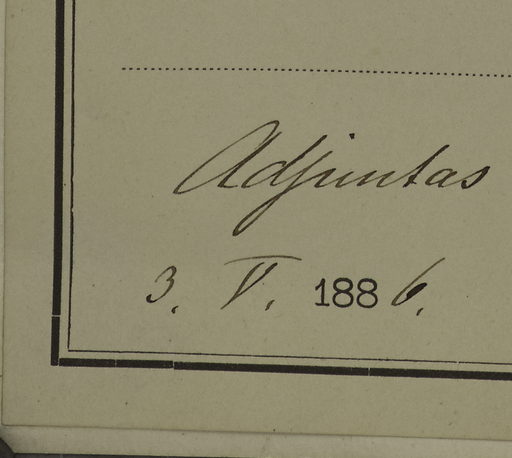 Adjuntas
3. V. 1886.